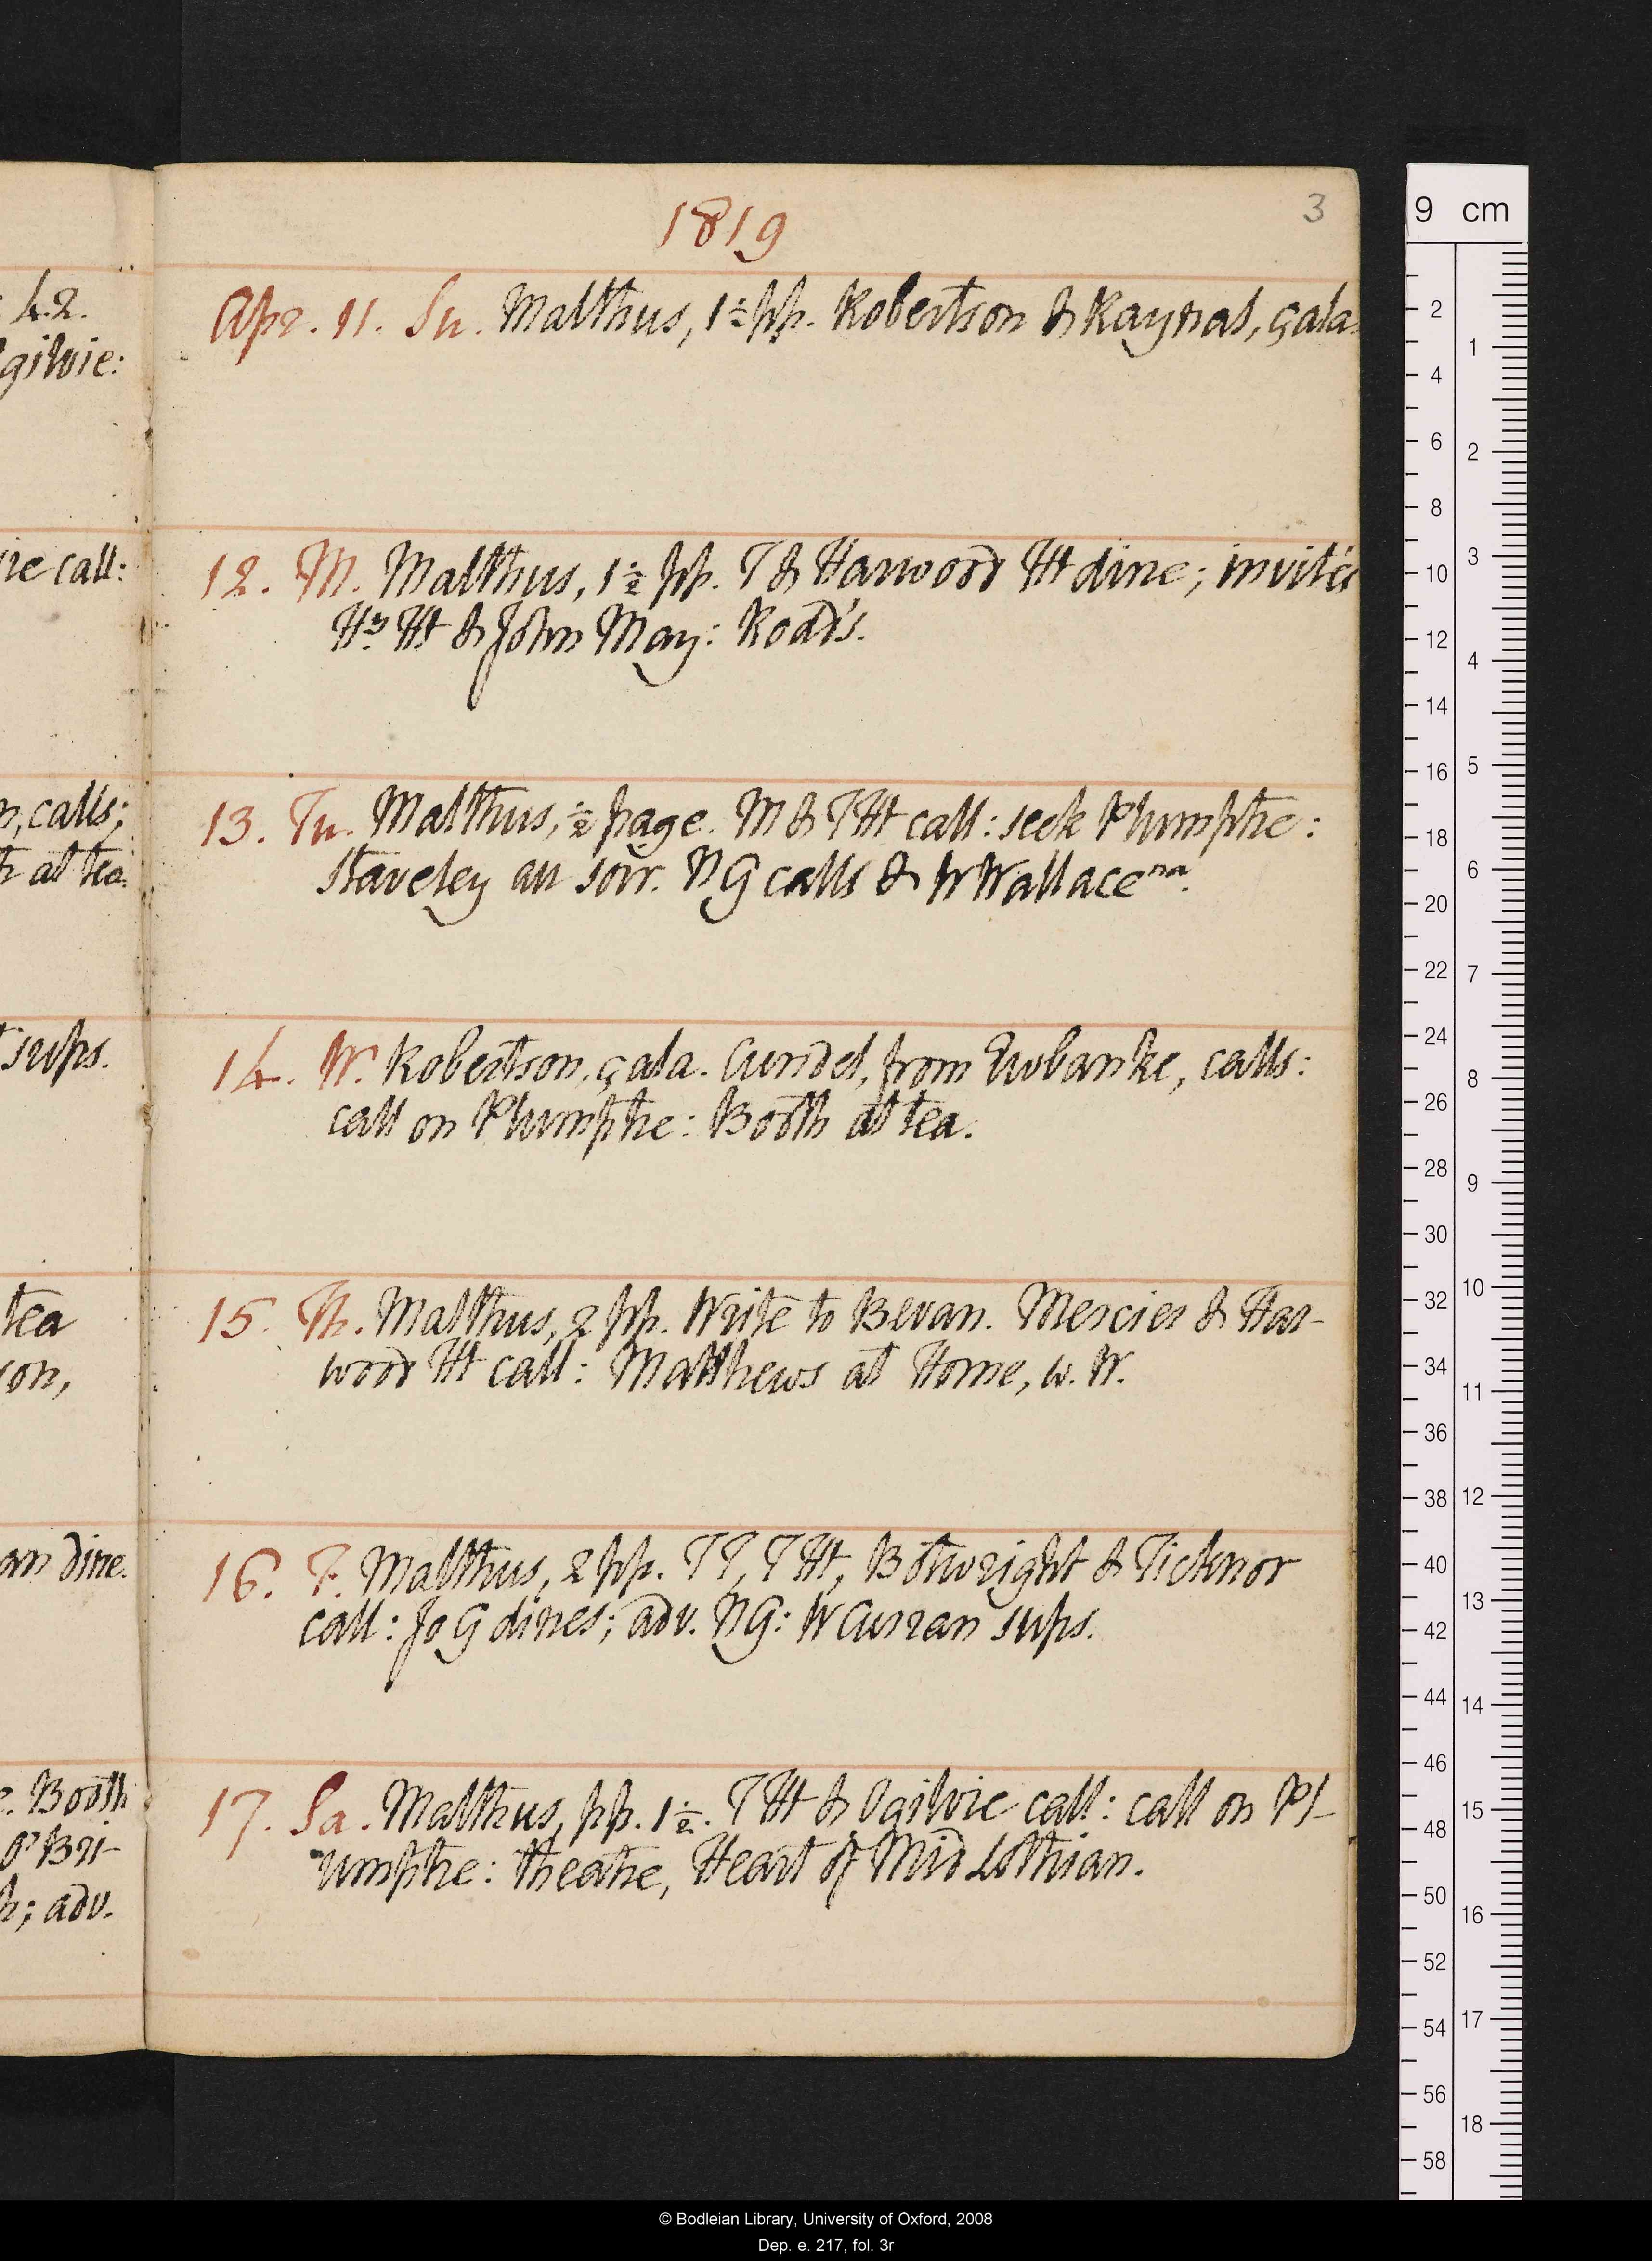 1819
3
: 42.
gilvie:
Apr. 11. Su. Malthus, 1½ pp. Robertson & Raynal, çala.
ne call:
12. M. Malthus, 1½ pp. T & Harwood Ht dine; invités
Hy Ht & John May: Road's.
n, calls;
h at tea.
13. Tu. Malthus, ½ page. M & THt call: seek Plumptre:
Staveley au soir. NG calls & W Wallace na.
sups.
14. W. Robertson, çala. Cundel, from Ewbanke, calls:
call on Plumptre: Booth at tea.
tea
son,
15. Th. Malthus, 2 pp. Write to Bevan. Mercier & Har-
wood Ht call: Matthews at Home, w. W.
an dine.
16. F. Malthus, 2 pp. TT, THt, Botwright & Ticknor
call: Jo G dines; adv. NG: W Curran sups.
. Booth
Bri-
h; adv.
17. Sa. Malthus, pp. 1½. THt & Ogilvie call: call on Pl-
umptre: theatre, Heart of Mid Lothian.
9 cm
2 4 6 8 10 12 14 16 18 20 22 24 26 28 30 32 34 36 38 40 42 44 46 48 50 52 54 56 58
1 2 3 4 5 6 7 8 9 10 11 12 13 14 15 16 17 18
© Bodleian Library, University of Oxford, 2008
Dep. e. 217, fol. 3r